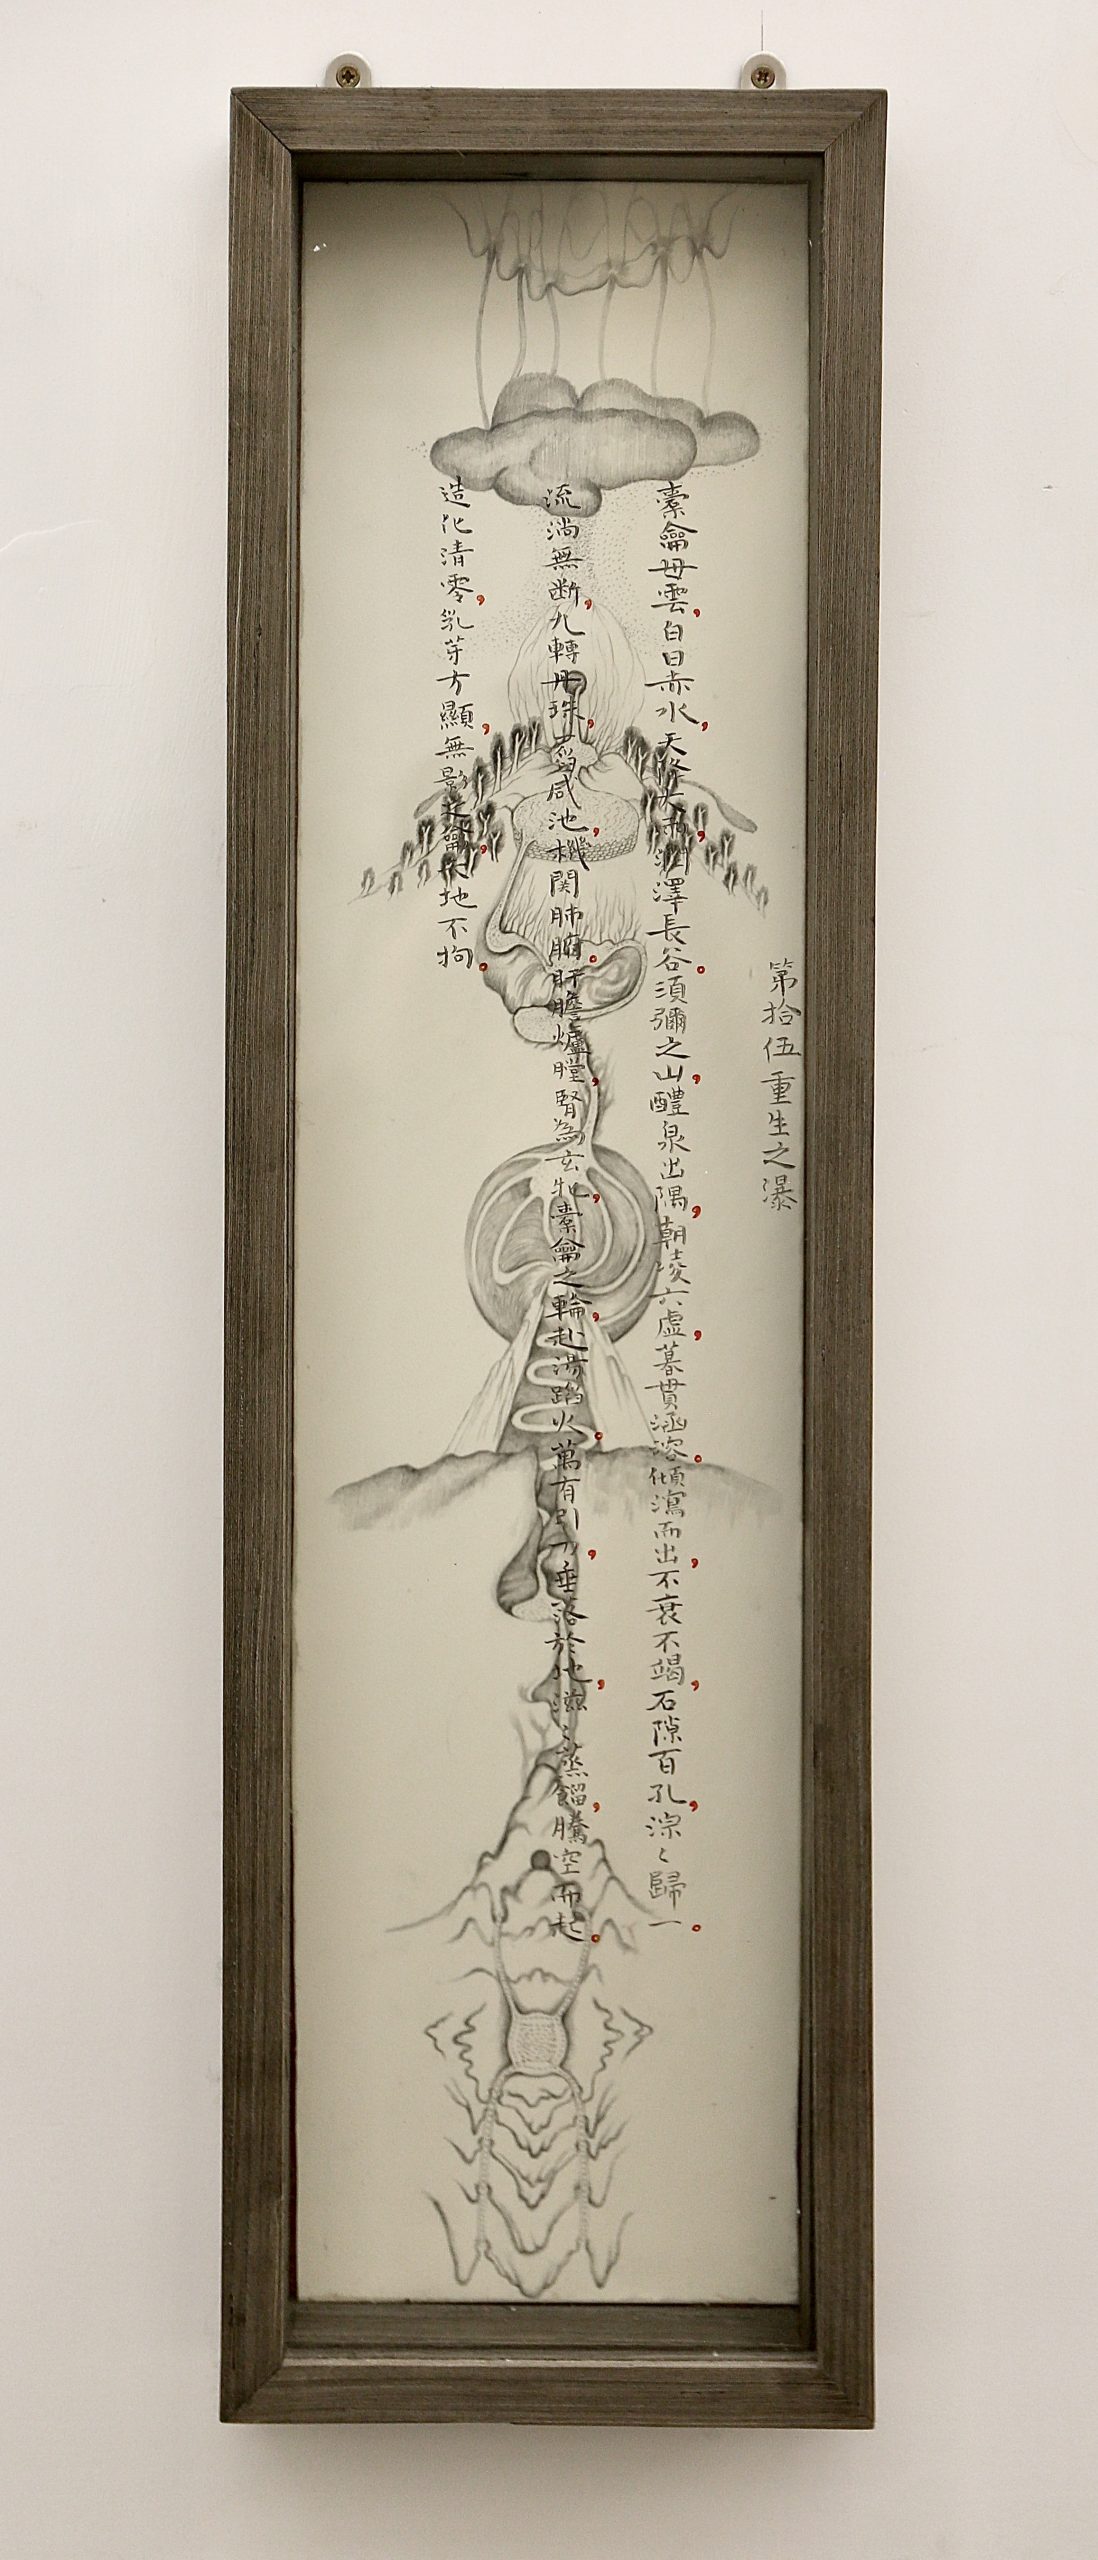 第拾伍重生之瀑
橐龠毋雲，白日赤水，天降大雨，潤澤長谷。須彌之山，醴泉出隅，朝凌六虛，暮貫涵溶。傾瀉而出，不衰不竭，石隙百孔，淙〻歸一。
流淌無断，九轉丹珠，咸池，機関肺腑。肝膽爐膛，腎為玄牝，橐龠之輪，赴湯蹈火。萬有引力，垂落於地，滋〻蒸餾，騰空而起。
造化清零，乳芽方顯，無影，地不拘。